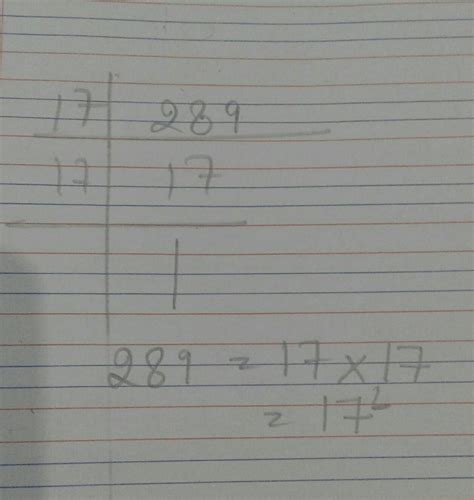 17 289
17 17
1
289 = 17 × 17
= 17²